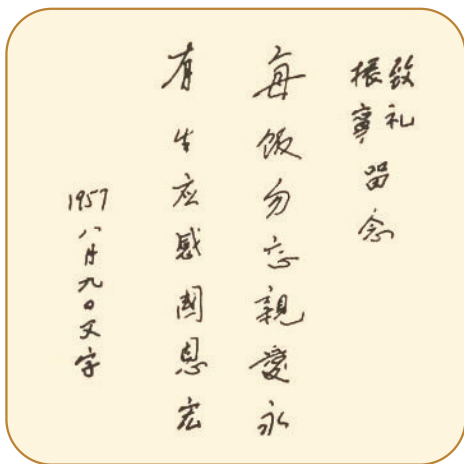 致礼
振寧 留念
每飯勿忘親愛永
有生应感國恩宏
1957 八月九日父字